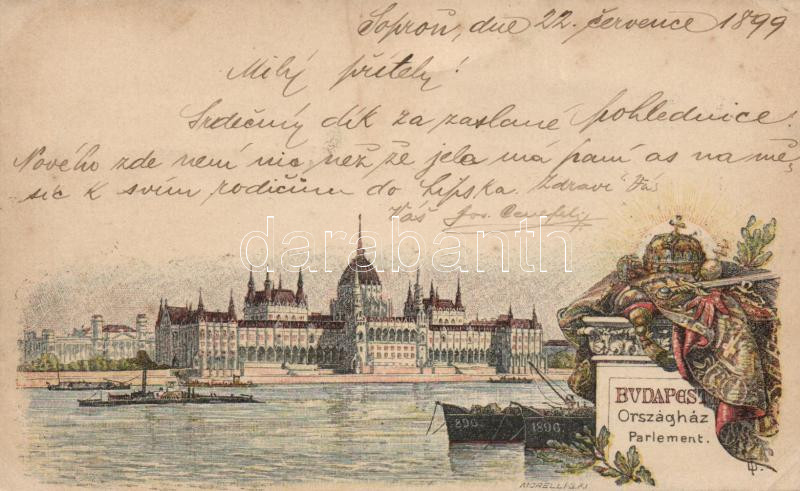 Soproň, dne 22. července 1899
Milý příteli!
Srdečný dík za zaslané pohlednice.
Nového zde není nic, než že jela má paní as na mě-
síc k svím rodičům do Lipska. Zdraví Vás
Váš Jos.
darabanth
.com
BUDAPEST
Országház
Parlement.
896
1896
MORELLI